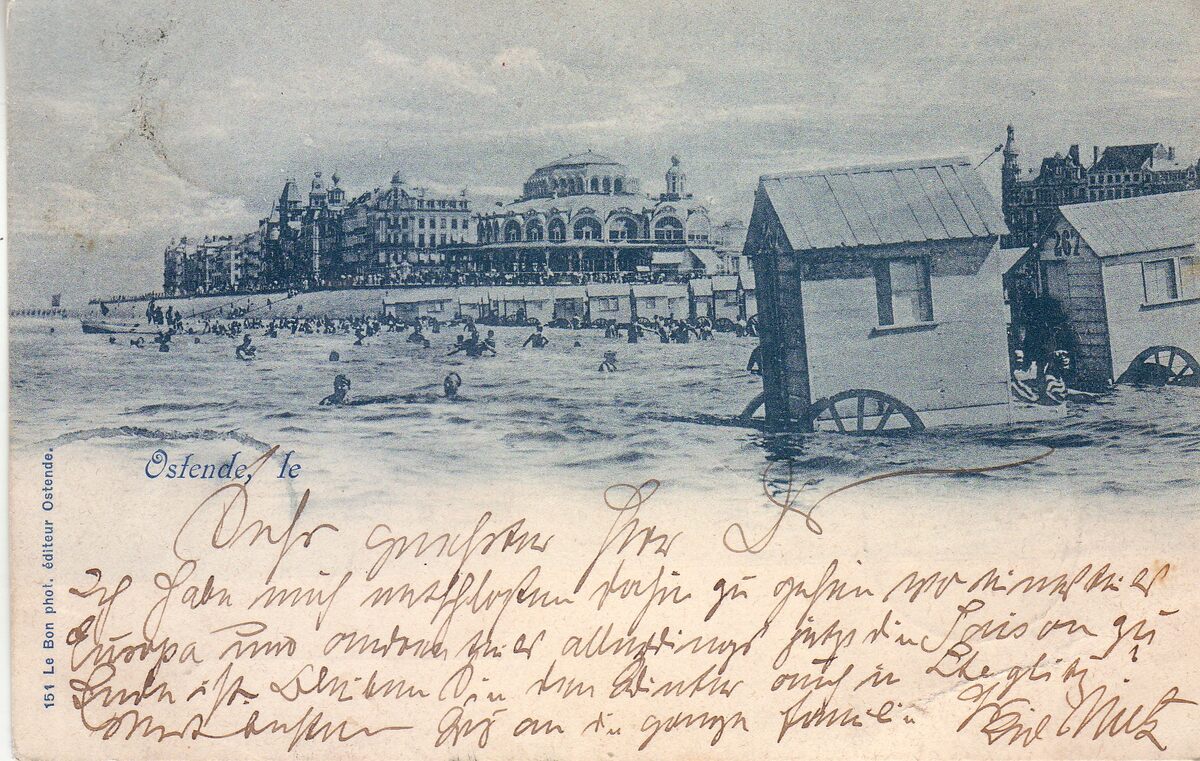 267
Ostende, le
151 Le Bon phot. éditeur Ostende.
Sehr geehrter Herr D
Ich habe mich entschlossen dahin zu gehen wo einerseits
Europa und andererseits allerdings jetzt die Saison zu
Ende ist. Bleiben Sie den Winter auch in Steglitz?
an die ganze Familie